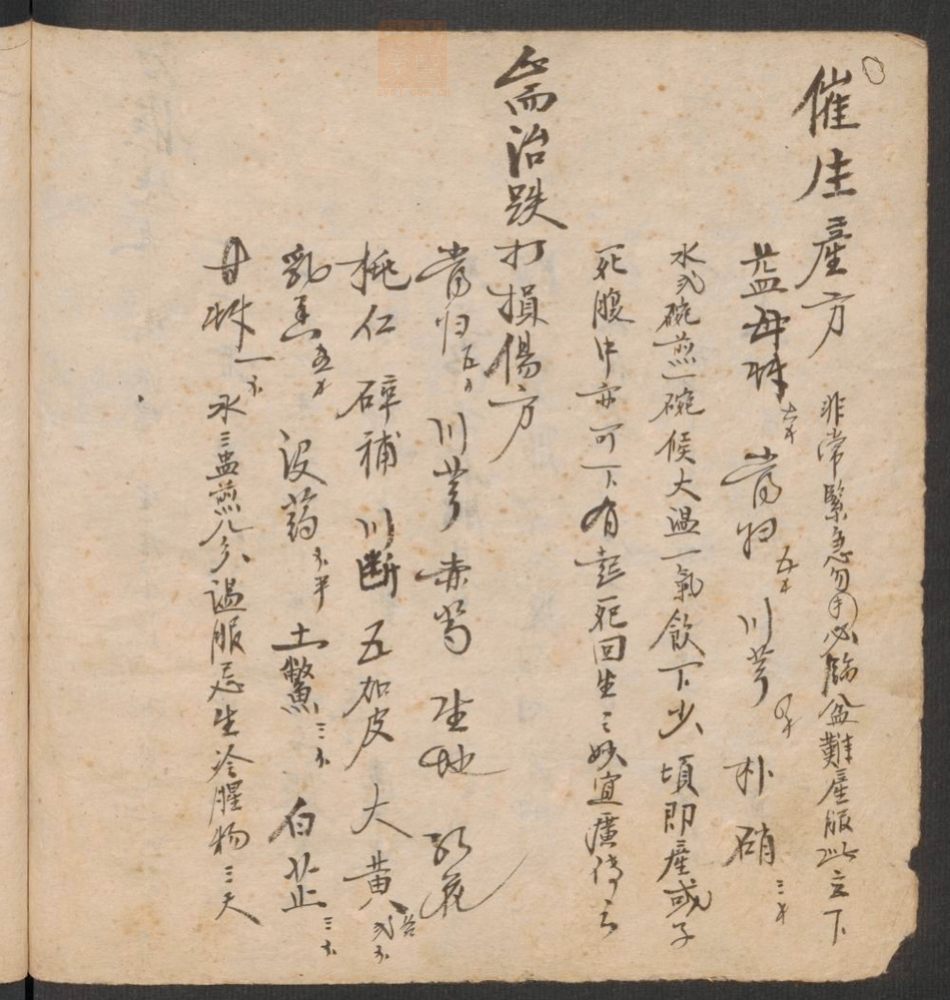 催生產方 非常緊急勿用必臨盆難產服此立下
益母草 六錢 當归 五錢 川芎 四錢 朴硝 三錢
水弍碗煎一碗候大温一氣飲下少頃即產或子
死腹中亦可下有起死回生之妙宜廣傳之
耑治跌打損傷方
當归 五分 川芎 赤芍 生地 红花
桃仁 碎補 川断 五加皮 大黃 各弍錢
乳香 五分 没药 錢半 土鱉 三錢 白芷 三錢
甘草 一錢 水三盂煎八分温服忌生冷腥物三天